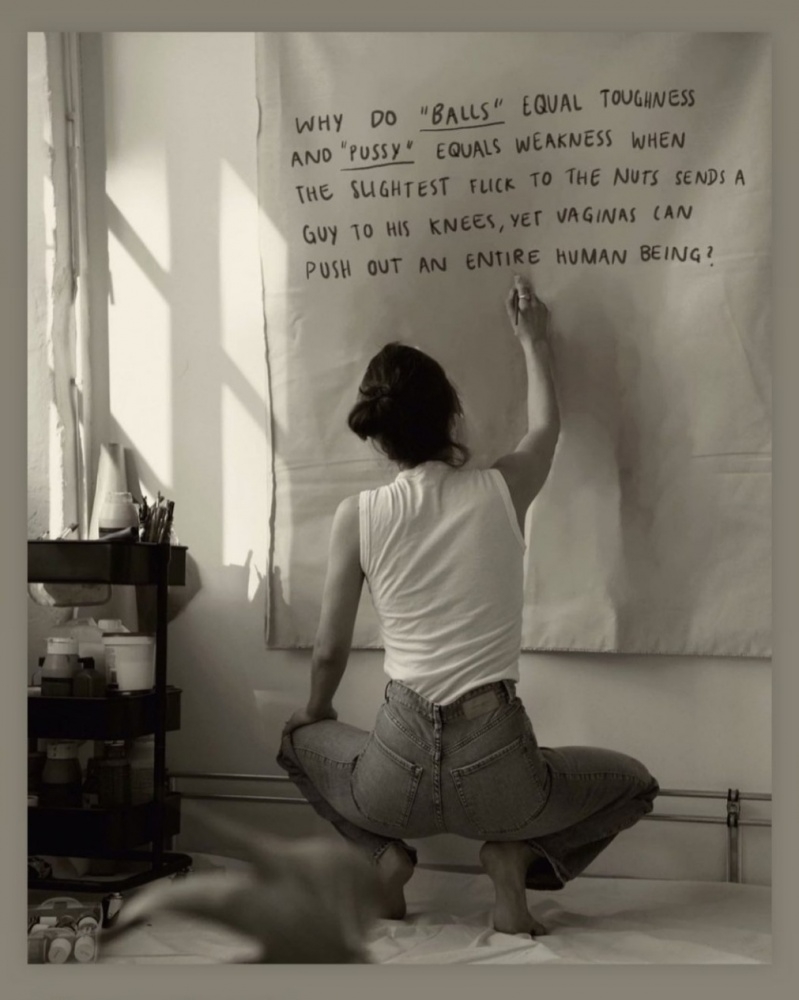 WHY DO "BALLS" EQUAL TOUGHNESS
AND "PUSSY" EQUALS WEAKNESS WHEN
THE SLIGHTEST FLICK TO THE NUTS SENDS A
GUY TO HIS KNEES, YET VAGINAS CAN
PUSH OUT AN ENTIRE HUMAN BEING?